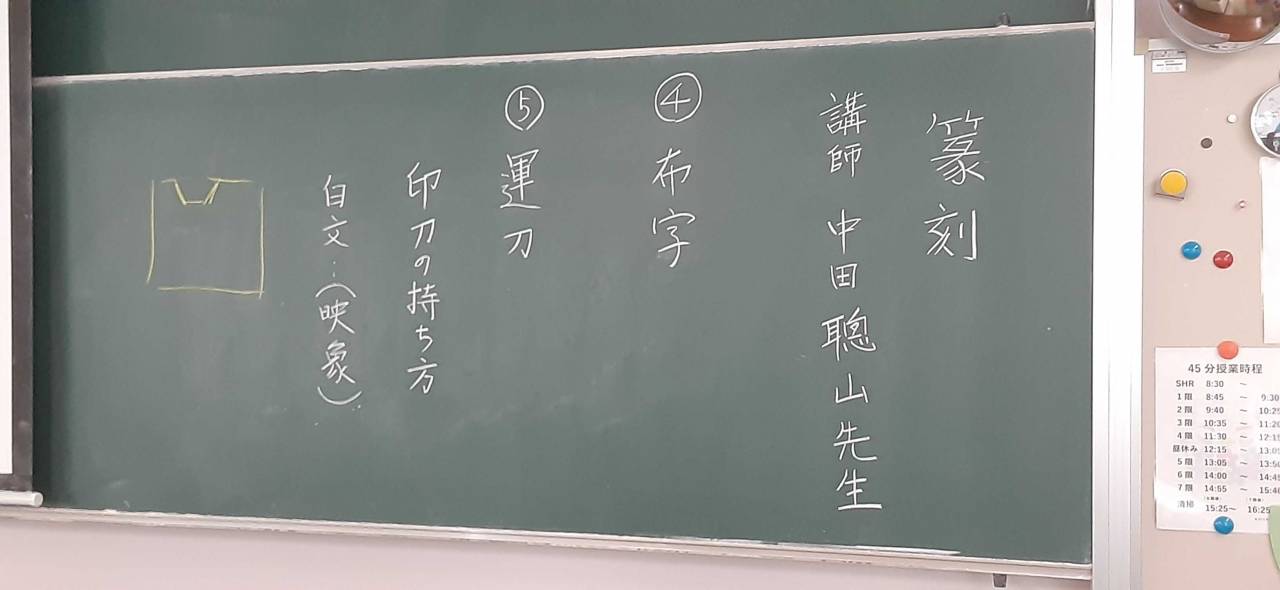 篆刻
講師 中田聰山先生
④布字
⑤運刀
印刀の持ち方
白文…(映象)
45分授業時程
SHR 8:30 ～
1限 8:45 ～ 9:30
2限 9:40 ～ 10:25
3限 10:35 ～ 11:20
4限 11:30 ～ 12:15
昼休み 12:15 ～ 13:05
5限 13:05 ～ 13:50
6限 14:00 ～ 14:45
7限 14:55 ～ 15:40
清掃 15:25～ 16:25